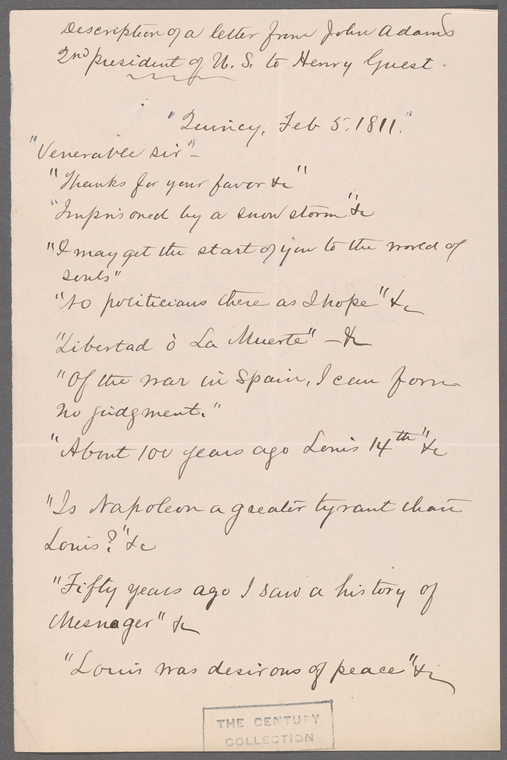 Description of a letter from John Adams
2nd president of U.S. to Henry Guest.
"Quincy, Feb 5. 1811."
"Venerable sir"-
"Thanks for your favor &c"
"Imprisoned by a snow storm" &c
"I may get the start of you to the world of
souls"
"No politicians there as I hope" &c
"Libertad ò La Muerte" - &c
"Of the war in Spain, I can form
no judgment."
"About 100 years ago Louis 14th" &c
"Is Napoleon a greater tyrant than
Louis?" &c
"Fifty years ago I saw a history of
Mesnager" &c
"Louis was desirous of peace" &c
THE CENTURY
COLLECTION